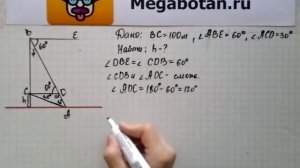 Megabotan.ru
Дано: BC=100м, ∠ABE=60°, ∠ACD=30°
Найти: h-?
∠DBE=∠CDB=60°
∠CDB и ∠ADC- смеж.
∠ADC=180°-60°=120°
B
E
60°
C
D
h
A